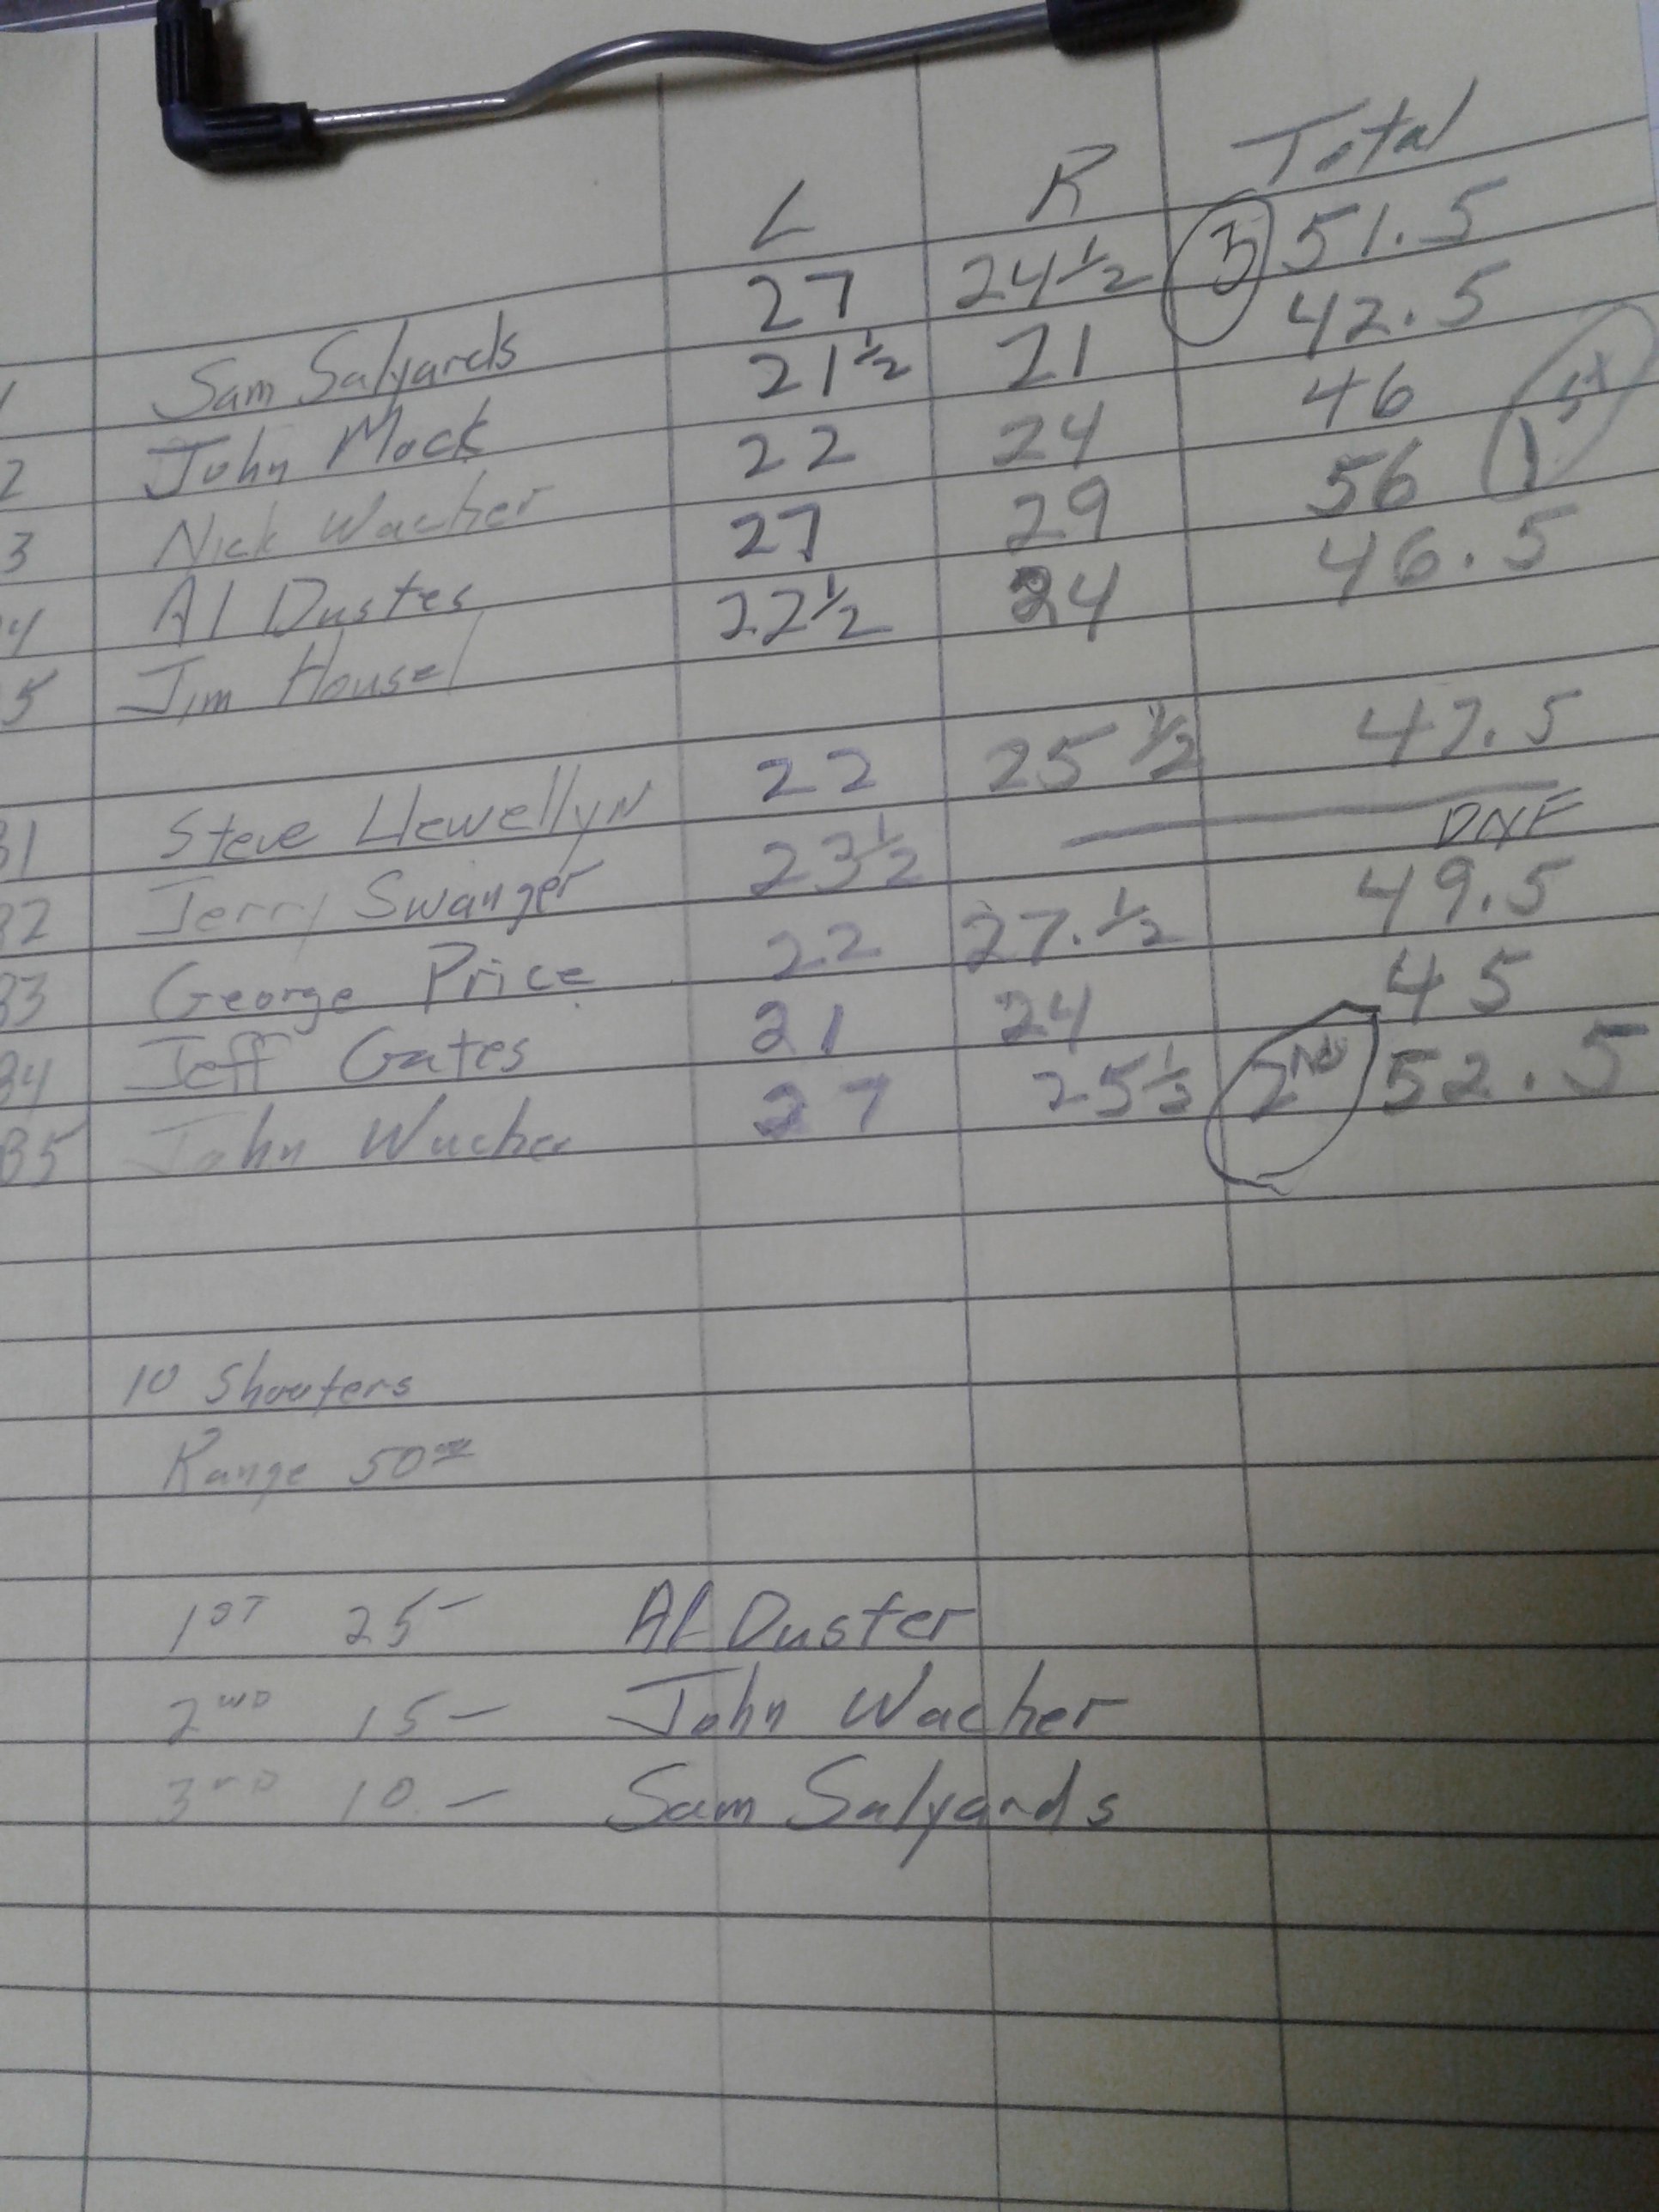 L R Total
1 Sam Salyards 27 24 1/2 3 51.5
2 John Mock 21 1/2 21 42.5
3 Nick Wacher 22 24 46
4 Al Duster 27 29 56 1st
5 Jim Housel 22 1/2 24 46.5
B1 Steve Llewellyn 22 25 1/2 47.5
B2 Jerry Swanger 23 1/2 — DNF
B3 George Price 22 27.1/2 49.5
B4 Jeff Gates 21 24 45
B5 John Wacher 27 25 1/2 2ND 52.5
10 Shooters
Range 50
1ST 25- Al Duster
2ND 15- John Wacher
3RD 10- Sam Salyards